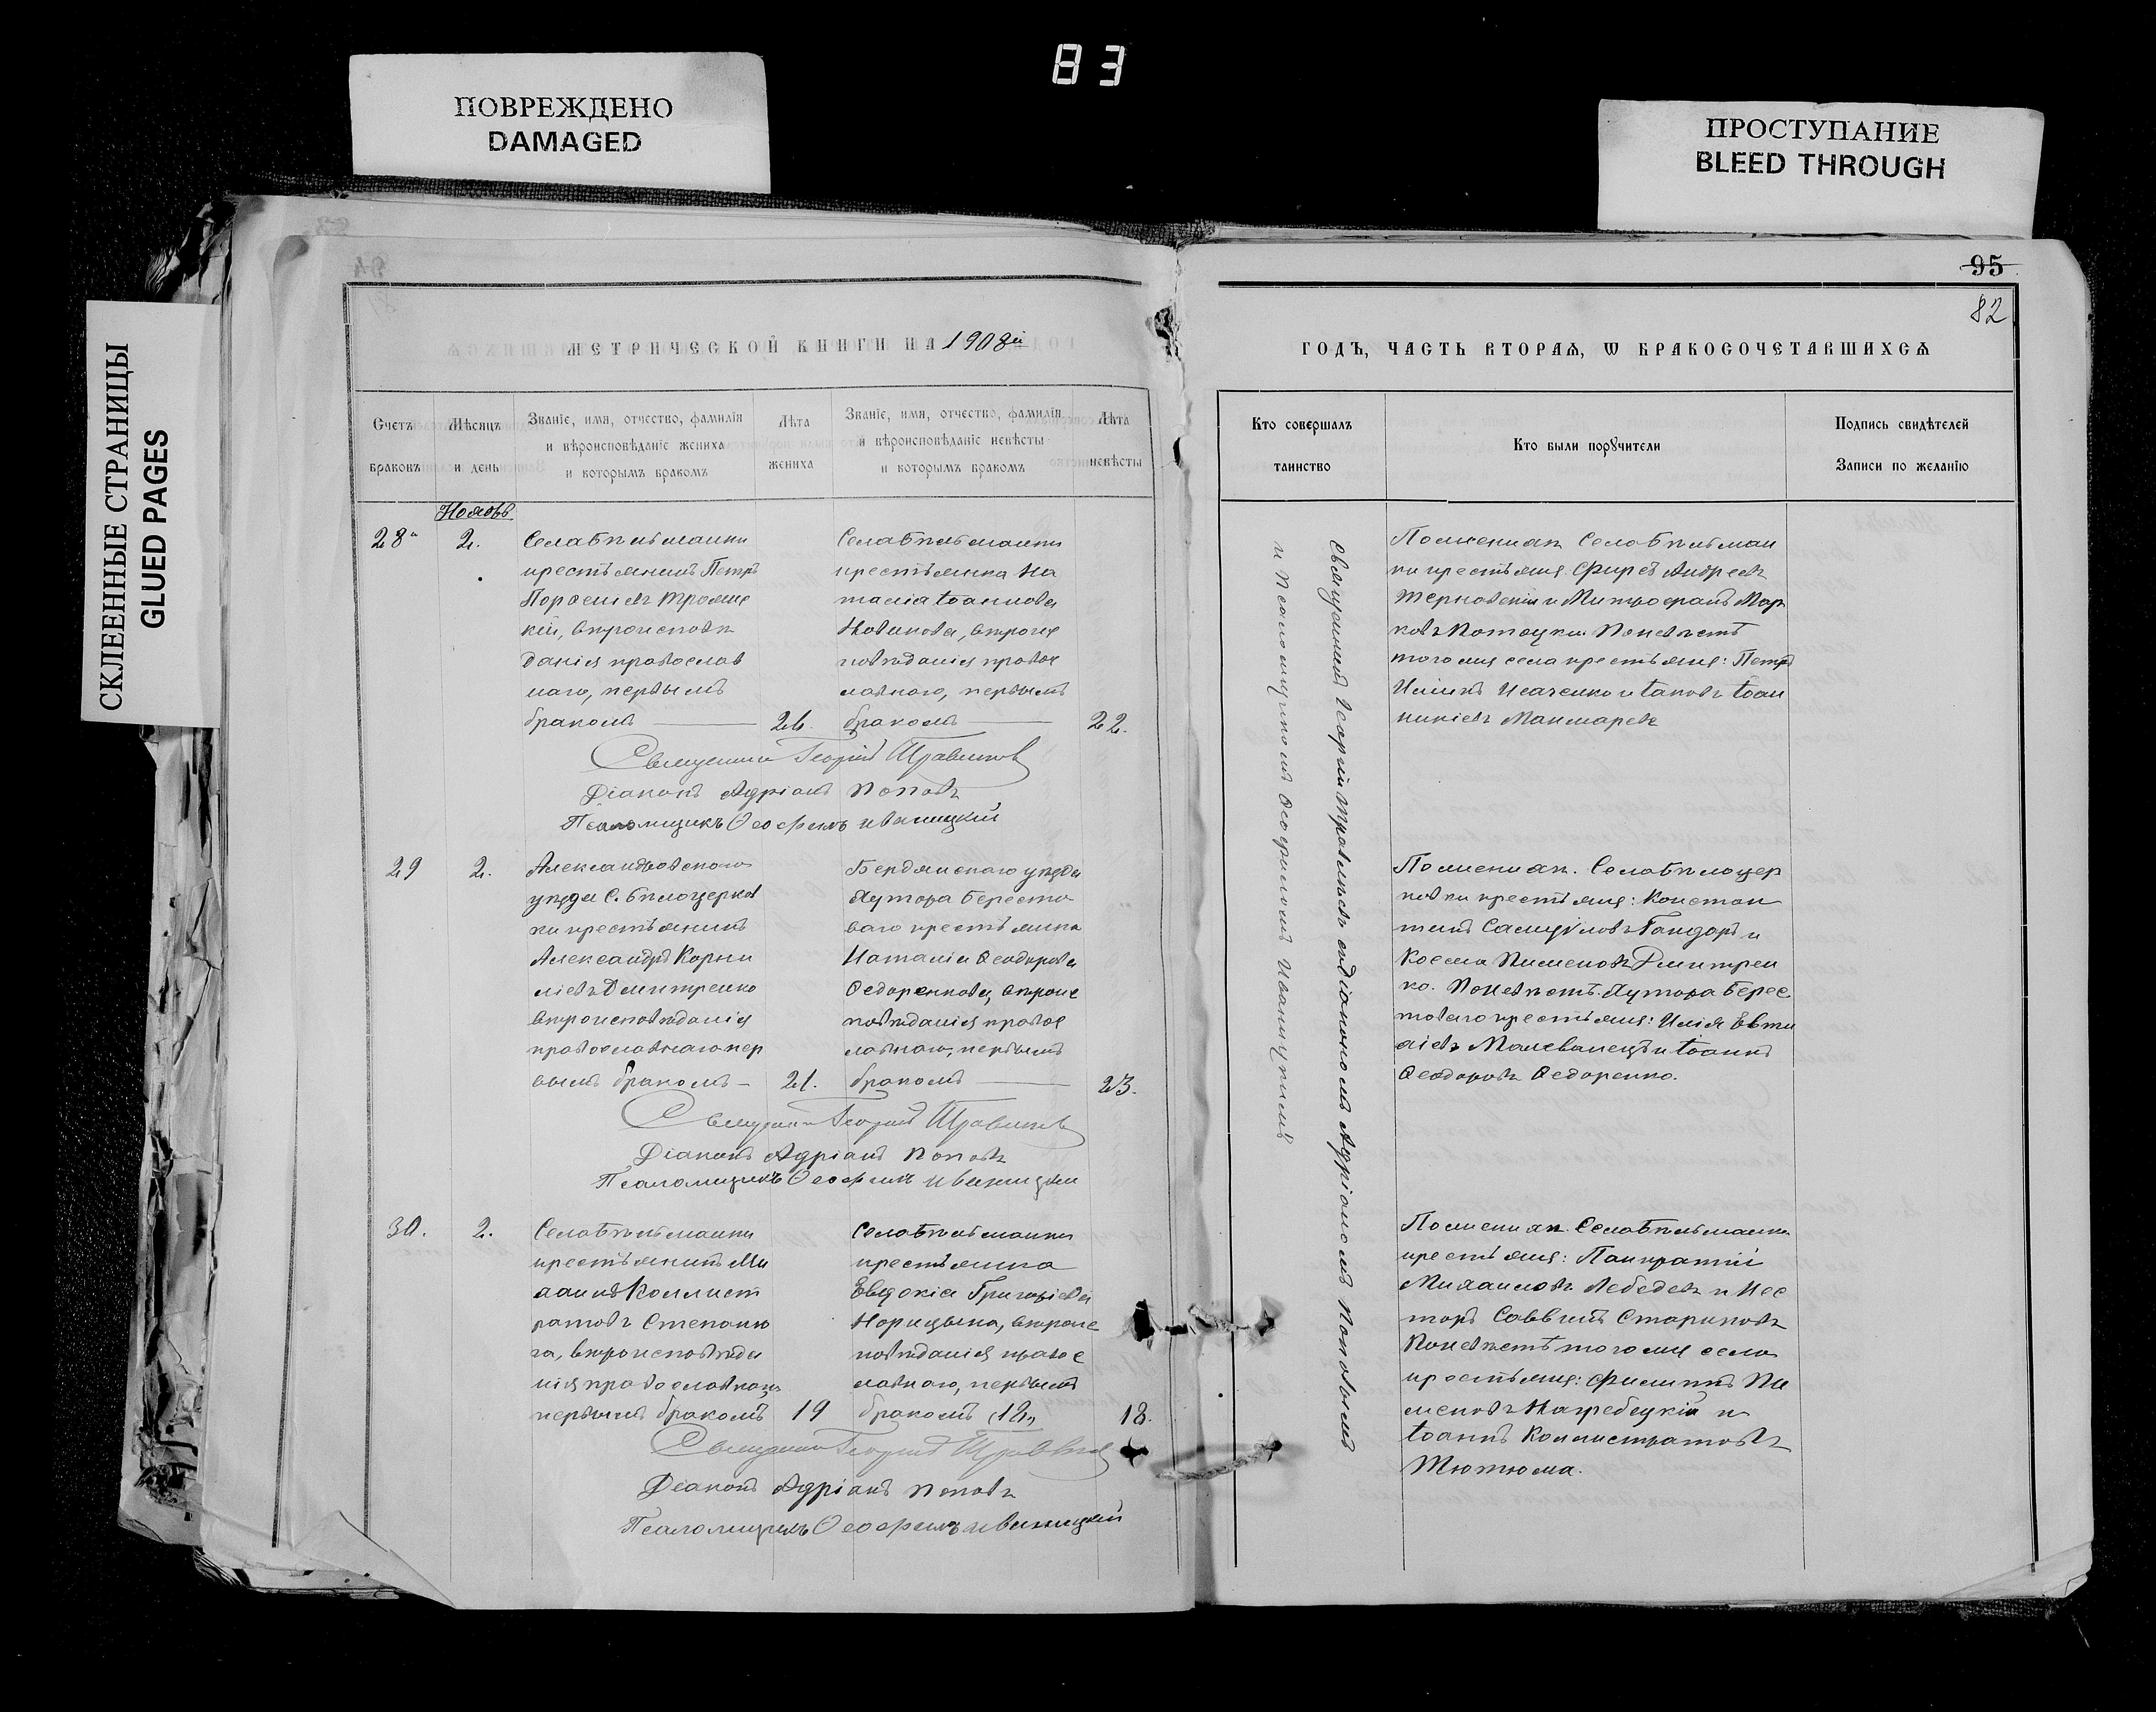 83
ПОВРЕЖДЕНО
DAMAGED
ПРОСТУПАНИЕ
BLEED THROUGH
СКЛЕЕННЫЕ СТРАНИЦЫ
GLUED PAGES
МЕТРИЧЕСКОЙ КНИГИ НА 1908й
Счетъ браковъ
Мѣсяцъ и день
Званіе, имя, отчество, фамилія
и вѣроисповѣданіе жениха
и которымъ бракомъ
Лѣта
жениха
Званіе, имя, отчество, фамилія
и вѣроисповѣданіе невѣсты
и которымъ бракомъ
Лѣта
невѣсты
Ноябрь
28
2.
Села Бѣльманки
крестьянинъ Петръ
кій, вѣроисповѣ
данія православ
наго, первымъ
бракомъ
26.
Села Бѣльманки
крестьянка На
талія Іоаннова
Новикова, вѣроис
повѣданія правос
лавнаго, первымъ
бракомъ
22.
Священникъ Георгій
Діаконъ Адріанъ Поповъ
Псаломщикъ Ѳеофилъ Иваницкій
29
2.
Александровскаго
уѣзда с. Бѣлоцерков
ки крестьянинъ
Александръ Корни
ліевъ Дмитренко
вѣроисповѣданія
православнаго пер
вымъ бракомъ
21.
Бердянскаго уѣзда
Хутора Бересто
ваго крестьянка
Наталія Ѳеодорова
Ѳедоренкова, вѣроис
повѣданія правос
лавнаго, первымъ
бракомъ
23.
Священникъ Георгій
Діаконъ Адріанъ Поповъ
Псаломщикъ Ѳеофилъ Иваницкій
30.
2.
Села Бѣльманки
крестьянинъ Ми
хаилъ Каллист
ратовъ Степаню
га, вѣроисповѣда
нія православнаго
первымъ бракомъ
19
Села Бѣльманки
крестьянка
Евдокія Григоріева
вѣроис
повѣданія правос
лавнаго, первымъ
бракомъ (18)
18.
Священникъ Георгій
Діаконъ Адріанъ Поповъ
Псаломщикъ Ѳеофилъ Иваницкій
95
82
ГОДЪ, ЧАСТЬ ВТОРАЯ, Ѡ БРАКОСОЧЕТАВШИХСЯ
Кто совершалъ
таинство
Кто были поручители
Подпись свидѣтелей
Записи по желанію
Священникъ Георгій съ діакономъ Адріаномъ Поповымъ
и псаломщикомъ Ѳеофиломъ Иваницкимъ
По женихѣ Села Бѣльман
ки крестьяне: Андреевъ
Терновскій и Митрофанъ Мар
ковъ Потоцкій. По невѣстѣ
того же села крестьяне: Петръ
Исаченко и Іаковъ Іоан
никіевъ
По женихѣ. Села Бѣлоцер
ковки крестьяне: Констан
тинъ Самуиловъ Гандаръ и
Косма Пименовъ Дмитрен
ко. По невѣстѣ. Хутора Берес
товаго крестьяне: Илія Евти
хіевъ Малеванецъ и Іоаннъ
Ѳеодоровъ Ѳедоренко.
По женихѣ Села Бѣльманки
крестьяне: Панкратій
Михаиловъ Лебедевъ и Нес
торъ Саввинъ Стариковъ
По невѣстѣ того же села
крестьяне: Филиппъ Пи
меновъ Нагребецкій и
Іоаннъ Каллистратовъ
Тютюма.